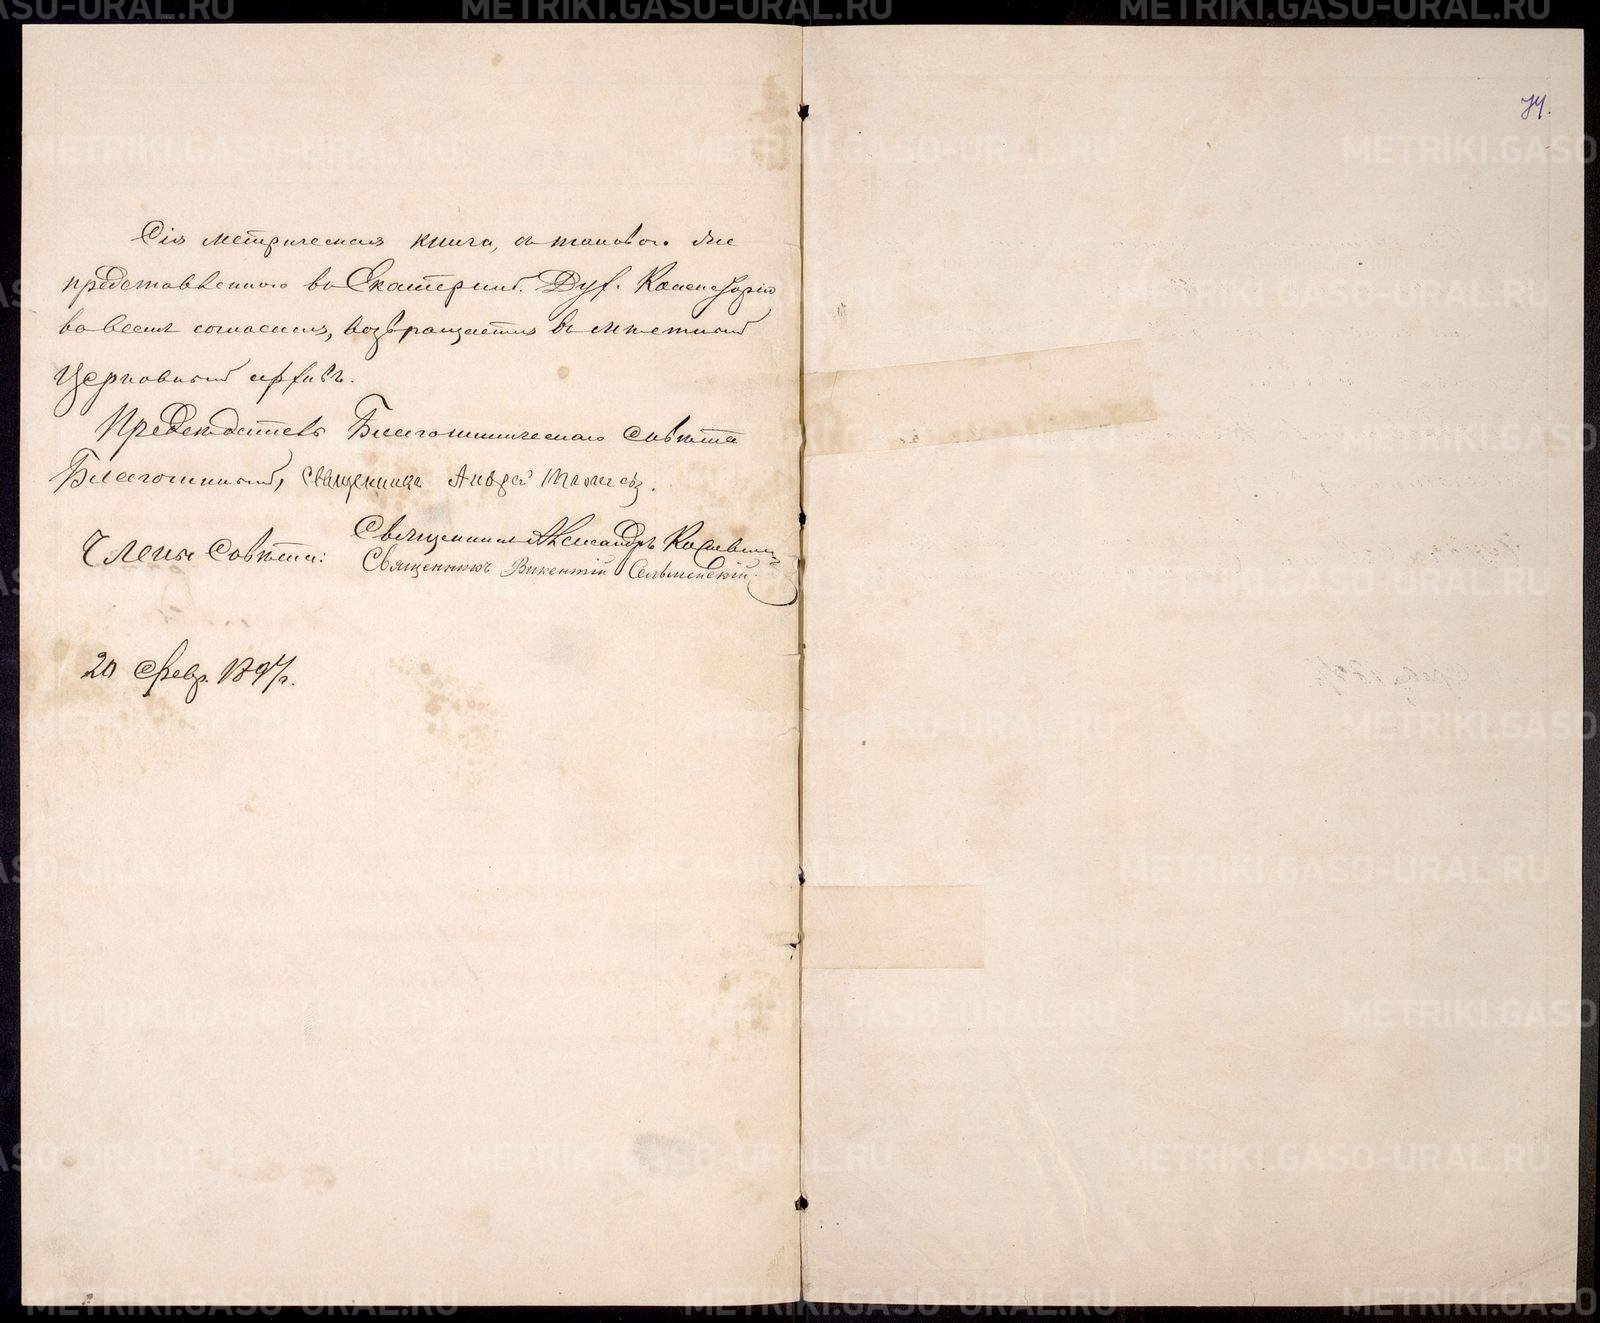 74.
Сія метрическая книга, съ таковою же
представленною въ Екатеринб. Дух. Консисторію
во всемъ согласная, возвращается въ мѣстный
Церковный архивъ.
Предсѣдатель Благочинническаго совѣта
Благочинный, священникъ Андрей
Члены Совѣта: Священникъ Александръ
Священникъ Викентій Сельменскій.
20 Февр. 1897 г.
METRIKI.GASO-URAL.RU